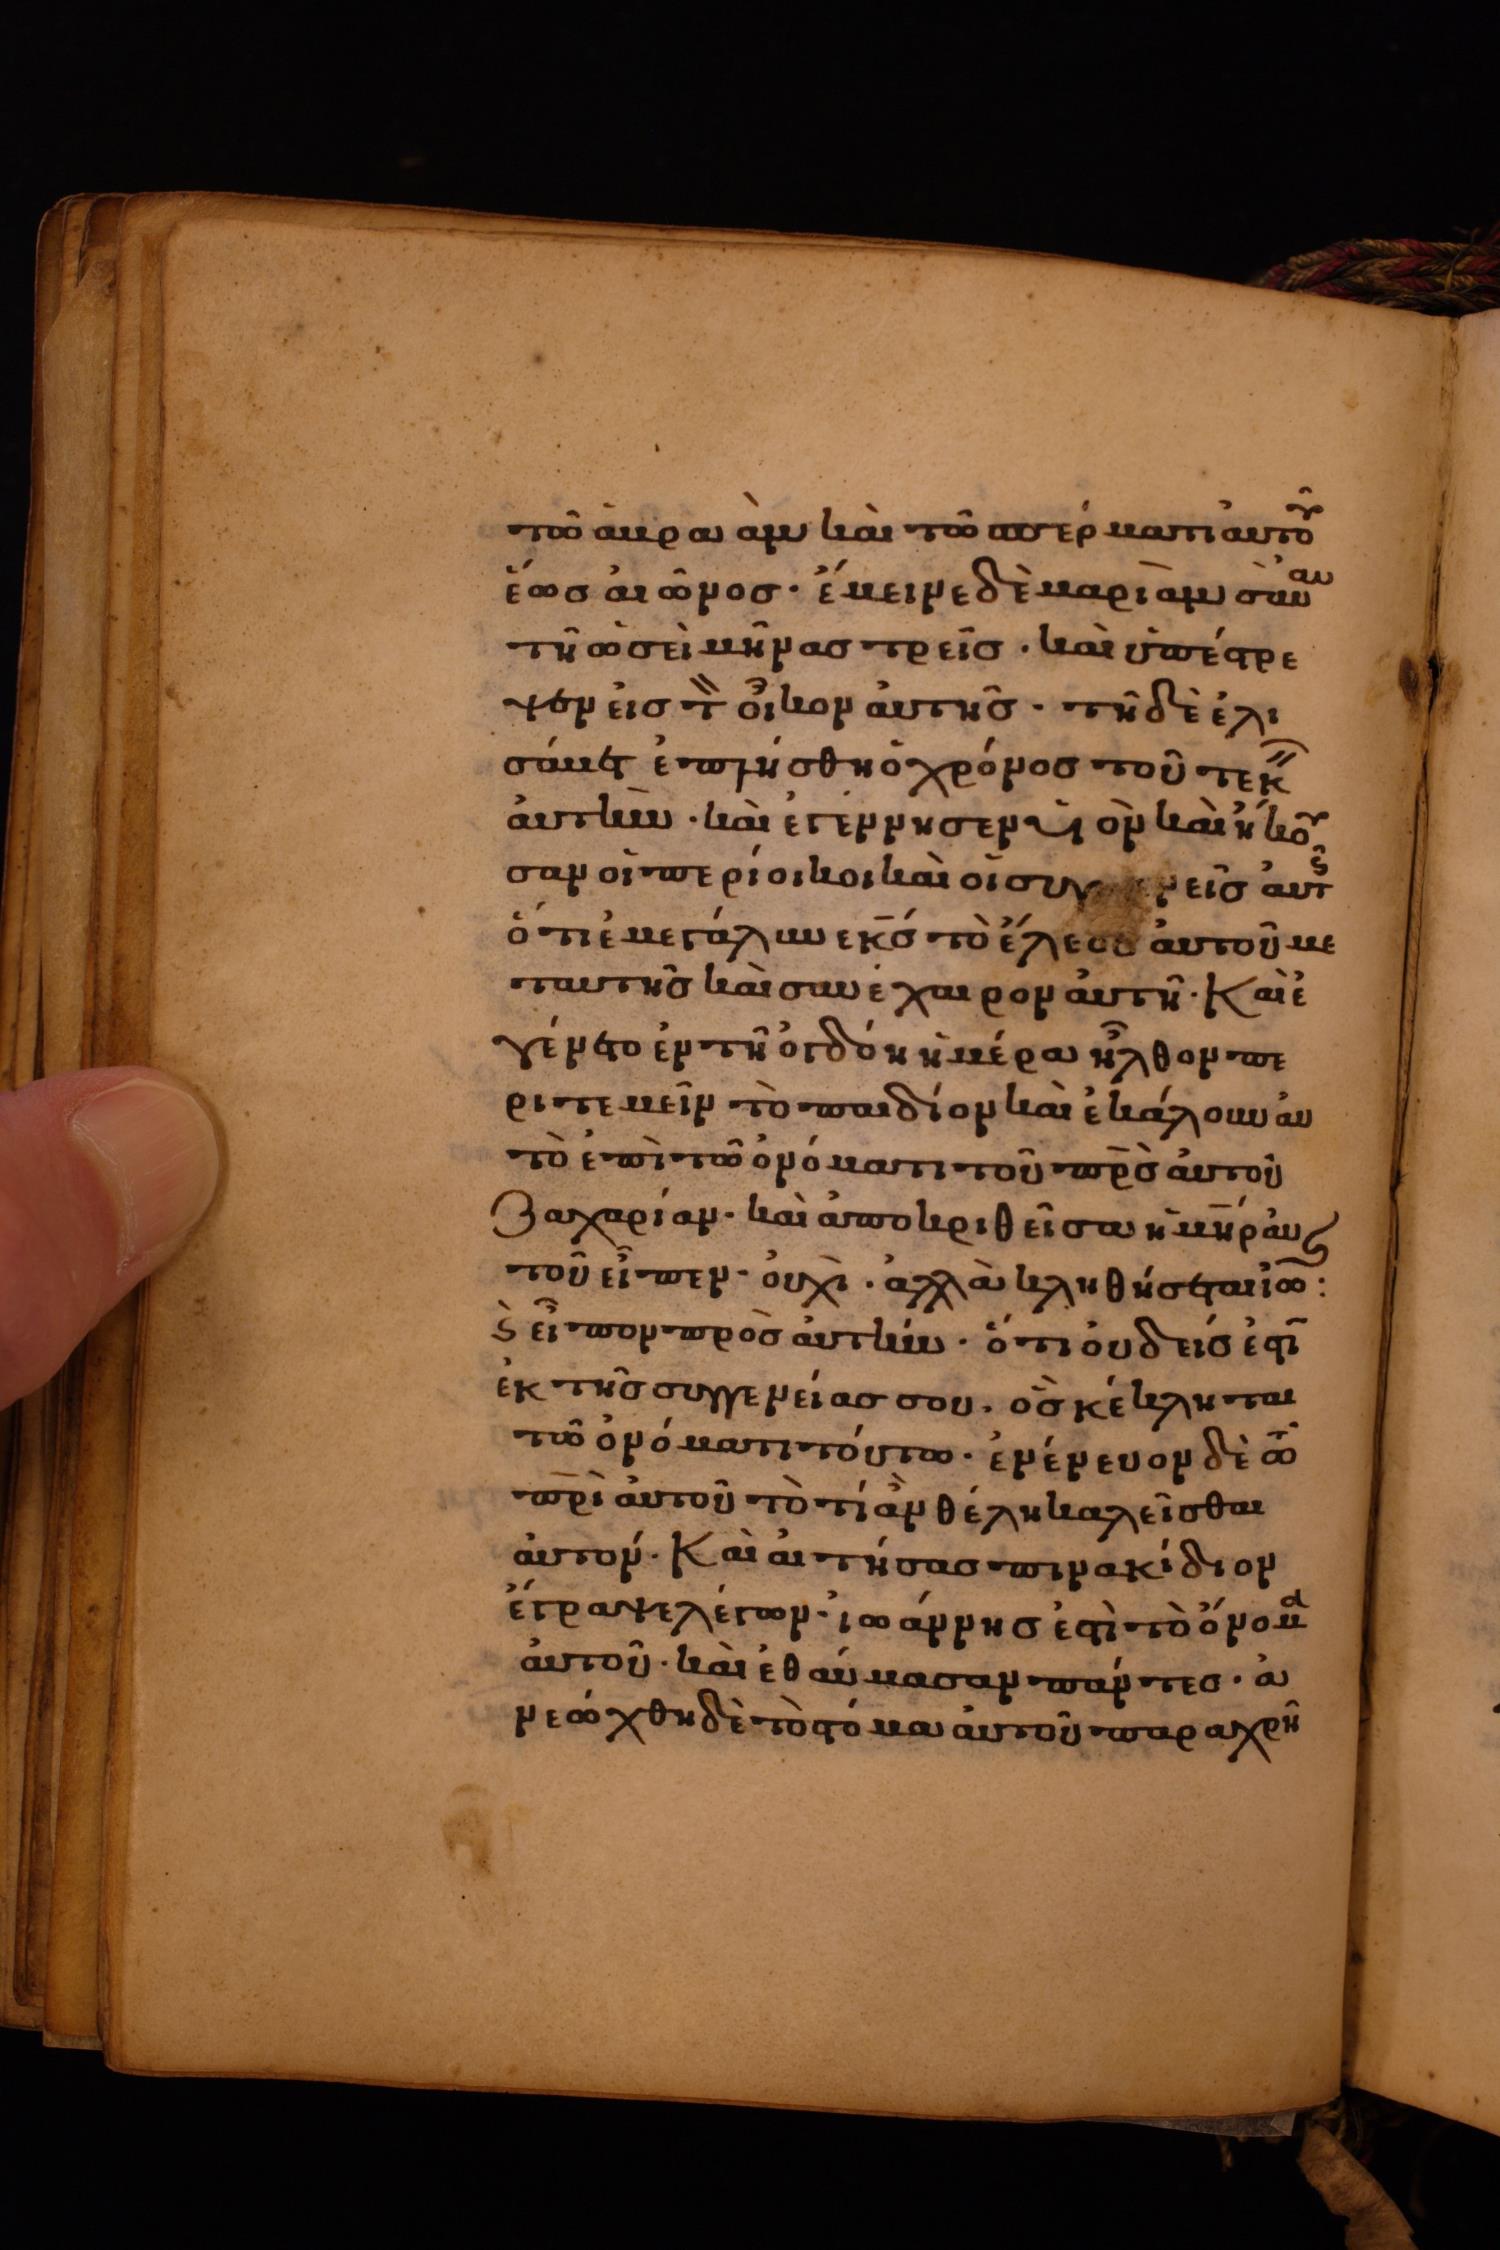 τῶ ἀβραὰμ καὶ τῶ σπέρματι αὐτοῦ
ἕως αἰῶνος· ἔμεινε δὲ μαριὰμ σὺν αὐ
τῆ ὡσεὶ μῆνας τρεῖς· καὶ ὑπέστρε
ψεν εἰς τὸν οἶκον αὐτῆς· τῆ δὲ ἐλι
σάβετ ἐπλήσθη ὁ χρόνος τοῦ τεκεῖν
αὐτὴν· καὶ ἐγέννησεν υἱὸν καὶ ἤκου
σαν οἱ περίοικοι καὶ οἱ συγγενεῖς αὐτῆς
ὅτι ἐμεγάλυνε κ̅ς̅ τὸ ἔλεος αὐτοῦ με
τ' αὐτῆς καὶ συνέχαιρον αὐτῆ· Καὶ ἐ
γένετο ἐν τῆ ὀγδόη ἡμέρα ἦλθον πε
ριτεμεῖν τὸ παιδίον καὶ ἐκάλουν αὐ
τὸ ἐπὶ τῶ ὀνόματι τοῦ π̅ρ̅ς̅ αὐτοῦ
Ζαχαρίαν· καὶ ἀποκριθεῖσα ἡ μ̅η̅ρ̅ αὐ
τοῦ εἶπεν· οὐχὶ· ἀλλὰ κληθήσεται ἰω̅:
ϗ εἶπον πρὸς αὐτὴν· ὅτι οὐδείς ἐστὶν
ἐκ τῆς συγγενείας σου· ὃς κέκληται
τῶ ὀνόματι τούτω· ἐνένευον δὲ τῶ
π̅ρ̅ι̅ αὐτοῦ τὸ τί ἂν θέλη καλεῖσθαι
αὐτόν· Καὶ αἰτήσας πινακίδιον
ἔγραψε λέγων· ἰωάννης ἐστὶ τὸ ὄνομα
αὐτοῦ· καὶ ἐθαύμασαν πάντες· ἀ
νεώχθη δὲ τὸ στόμα αὐτοῦ παραχρῆ